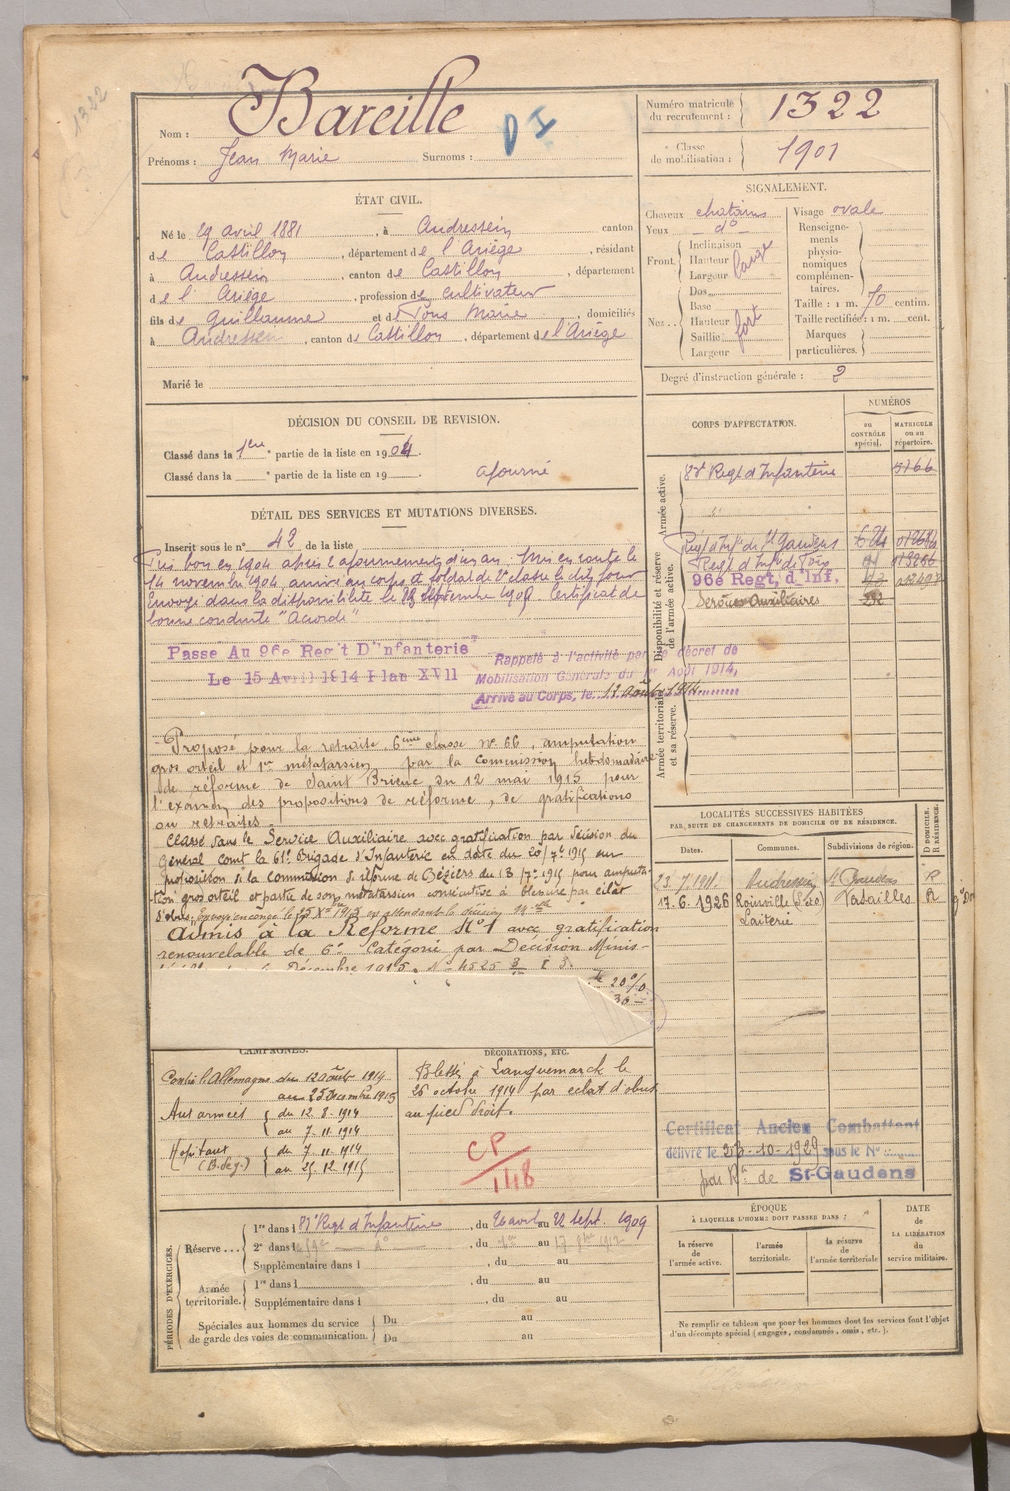 1322
Nom : Bareille
D I
Prénoms : Jean Marie Surnoms :
Numéro matricule du recrutement : 1322
Classe de mobilisation : 1901
ÉTAT CIVIL.
Né le 29 avril 1881, à Andressein canton
de Castillon, département de l'Ariège, résidant
à Andressein, canton de Castillon, département
de l'Ariège, profession de cultivateur
fils de Guillaume et de Pons Marie, domiciliés
à Andressein, canton de Castillon, département de l'Ariège
Marié le
SIGNALEMENT.
Cheveux chatains
Yeux d°
Front. Inclinaison
Hauteur
Largeur
Nez... Dos
Base
Hauteur
Saillie fort
Largeur
Visage ovale
Renseignements physionomiques complémentaires.
Taille : 1 m. 70 centim.
Taille rectifiée : 1 m. cent.
Marques particulières.
Degré d'instruction générale : 2
DÉCISION DU CONSEIL DE REVISION.
Classé dans la 1ere partie de la liste en 1904.
Classé dans la partie de la liste en 19
ajourné
DÉTAIL DES SERVICES ET MUTATIONS DIVERSES.
Inscrit sous le n° 42 de la liste
Pris bon en 1904 après 1 ajournement d'un an. Mis en route le
14 novembre 1904, arrivé au corps et soldat de 2e classe le dit jour
Envoyé dans la disponibilité le septembre Certificat de
bonne conduite "Accordé"
Passe Au 96e Reg't D'Infanterie
Le 15 Avril 1914 Plan XVII
Rappelé à l'activité par le décret de
Mobilisation Générale du 1er Août 1914,
Arrivé au Corps, le 12 août 1914
Proposé pour la retraite 6ème classe n° 66, amputation
gros orteil et 1er métatarsien par la commission hebdomadaire
de réforme de Saint Brieuc du 12 mai 1915 pour
l'examen des propositions de réforme, de gratifications
ou retraites.
Classé dans le Service Auxiliaire avec gratification par décision du
Général Comt la 61e Brigade d'Infanterie en date du 20/7e 1915 sur
proposition de la commission de réforme de Béziers du 13/7e 1915 pour amputa-
tion gros orteil et partie de son métatarsien consécutive à blessure par éclat
d'obus. Envoyé en congé le 25 Xbre 1915 en attendant la décision
admis à la Réforme N°1 avec gratification
renouvelable de 6e Catégorie par Décision Minis-
Décembre 1915. N° 4525
20 %
30
CORPS D'AFFECTATION.
NUMÉROS
au CONTRÔLE spécial.
MATRICULE ou au répertoire.
Armée active.
Régt d'Infanterie 5166
Disponibilité et réserve de l'armée active.
Régt d'Inf. de St Gaudens
Régt d'Infie de
96e Reg't, d'Inf.
Services Auxiliaires 232
Armée territoriale et sa réserve.
LOCALITÉS SUCCESSIVES HABITÉES
PAR SUITE DE CHANGEMENTS DE DOMICILE OU DE RÉSIDENCE.
Dates. Communes. Subdivisions de région. D DOMICILE. R RÉSIDENCE.
23.7.1911. Andressein St Gaudens R
17.6.1926 Roinville (S&O) Versailles R
Laiterie
CAMPAGNES.
Contre l'Allemagne du 12 août 1914
au 25 Décembre 1915
Aux armées du 12.8.1914
au 7.11.1914
Hopitaux du 7.11.1914
au 25.12.1915
DÉCORATIONS, ETC.
Blessé à Languemarck le
26 octobre 1914 par éclat d'obus
au pied droit.
CP
148
Certificat Ancien Combattant
délivré le 23-10-1929 sous le N°
par de St-Gaudens
PÉRIODES D'EXERCICES.
Réserve... 1re dans l Regt d'Infanterie, du 26 août au 22 sept. 1909
2e dans l d°, du au 17 1912
Supplémentaire dans l , du au
Armée territoriale. 1re dans l , du au
Supplémentaire dans l , du au
Spéciales aux hommes du service de garde des voies de communication. Du au
Du au
ÉPOQUE
À LAQUELLE L'HOMME DOIT PASSER DANS :
la réserve de l'armée active.
l'armée territoriale.
la réserve de l'armée territoriale
DATE DE LA LIBÉRATION du service militaire.
Ne remplir ce tableau que pour les hommes dont les services font l'objet
d'un décompte spécial (engagés, condamnés, omis, etc.).